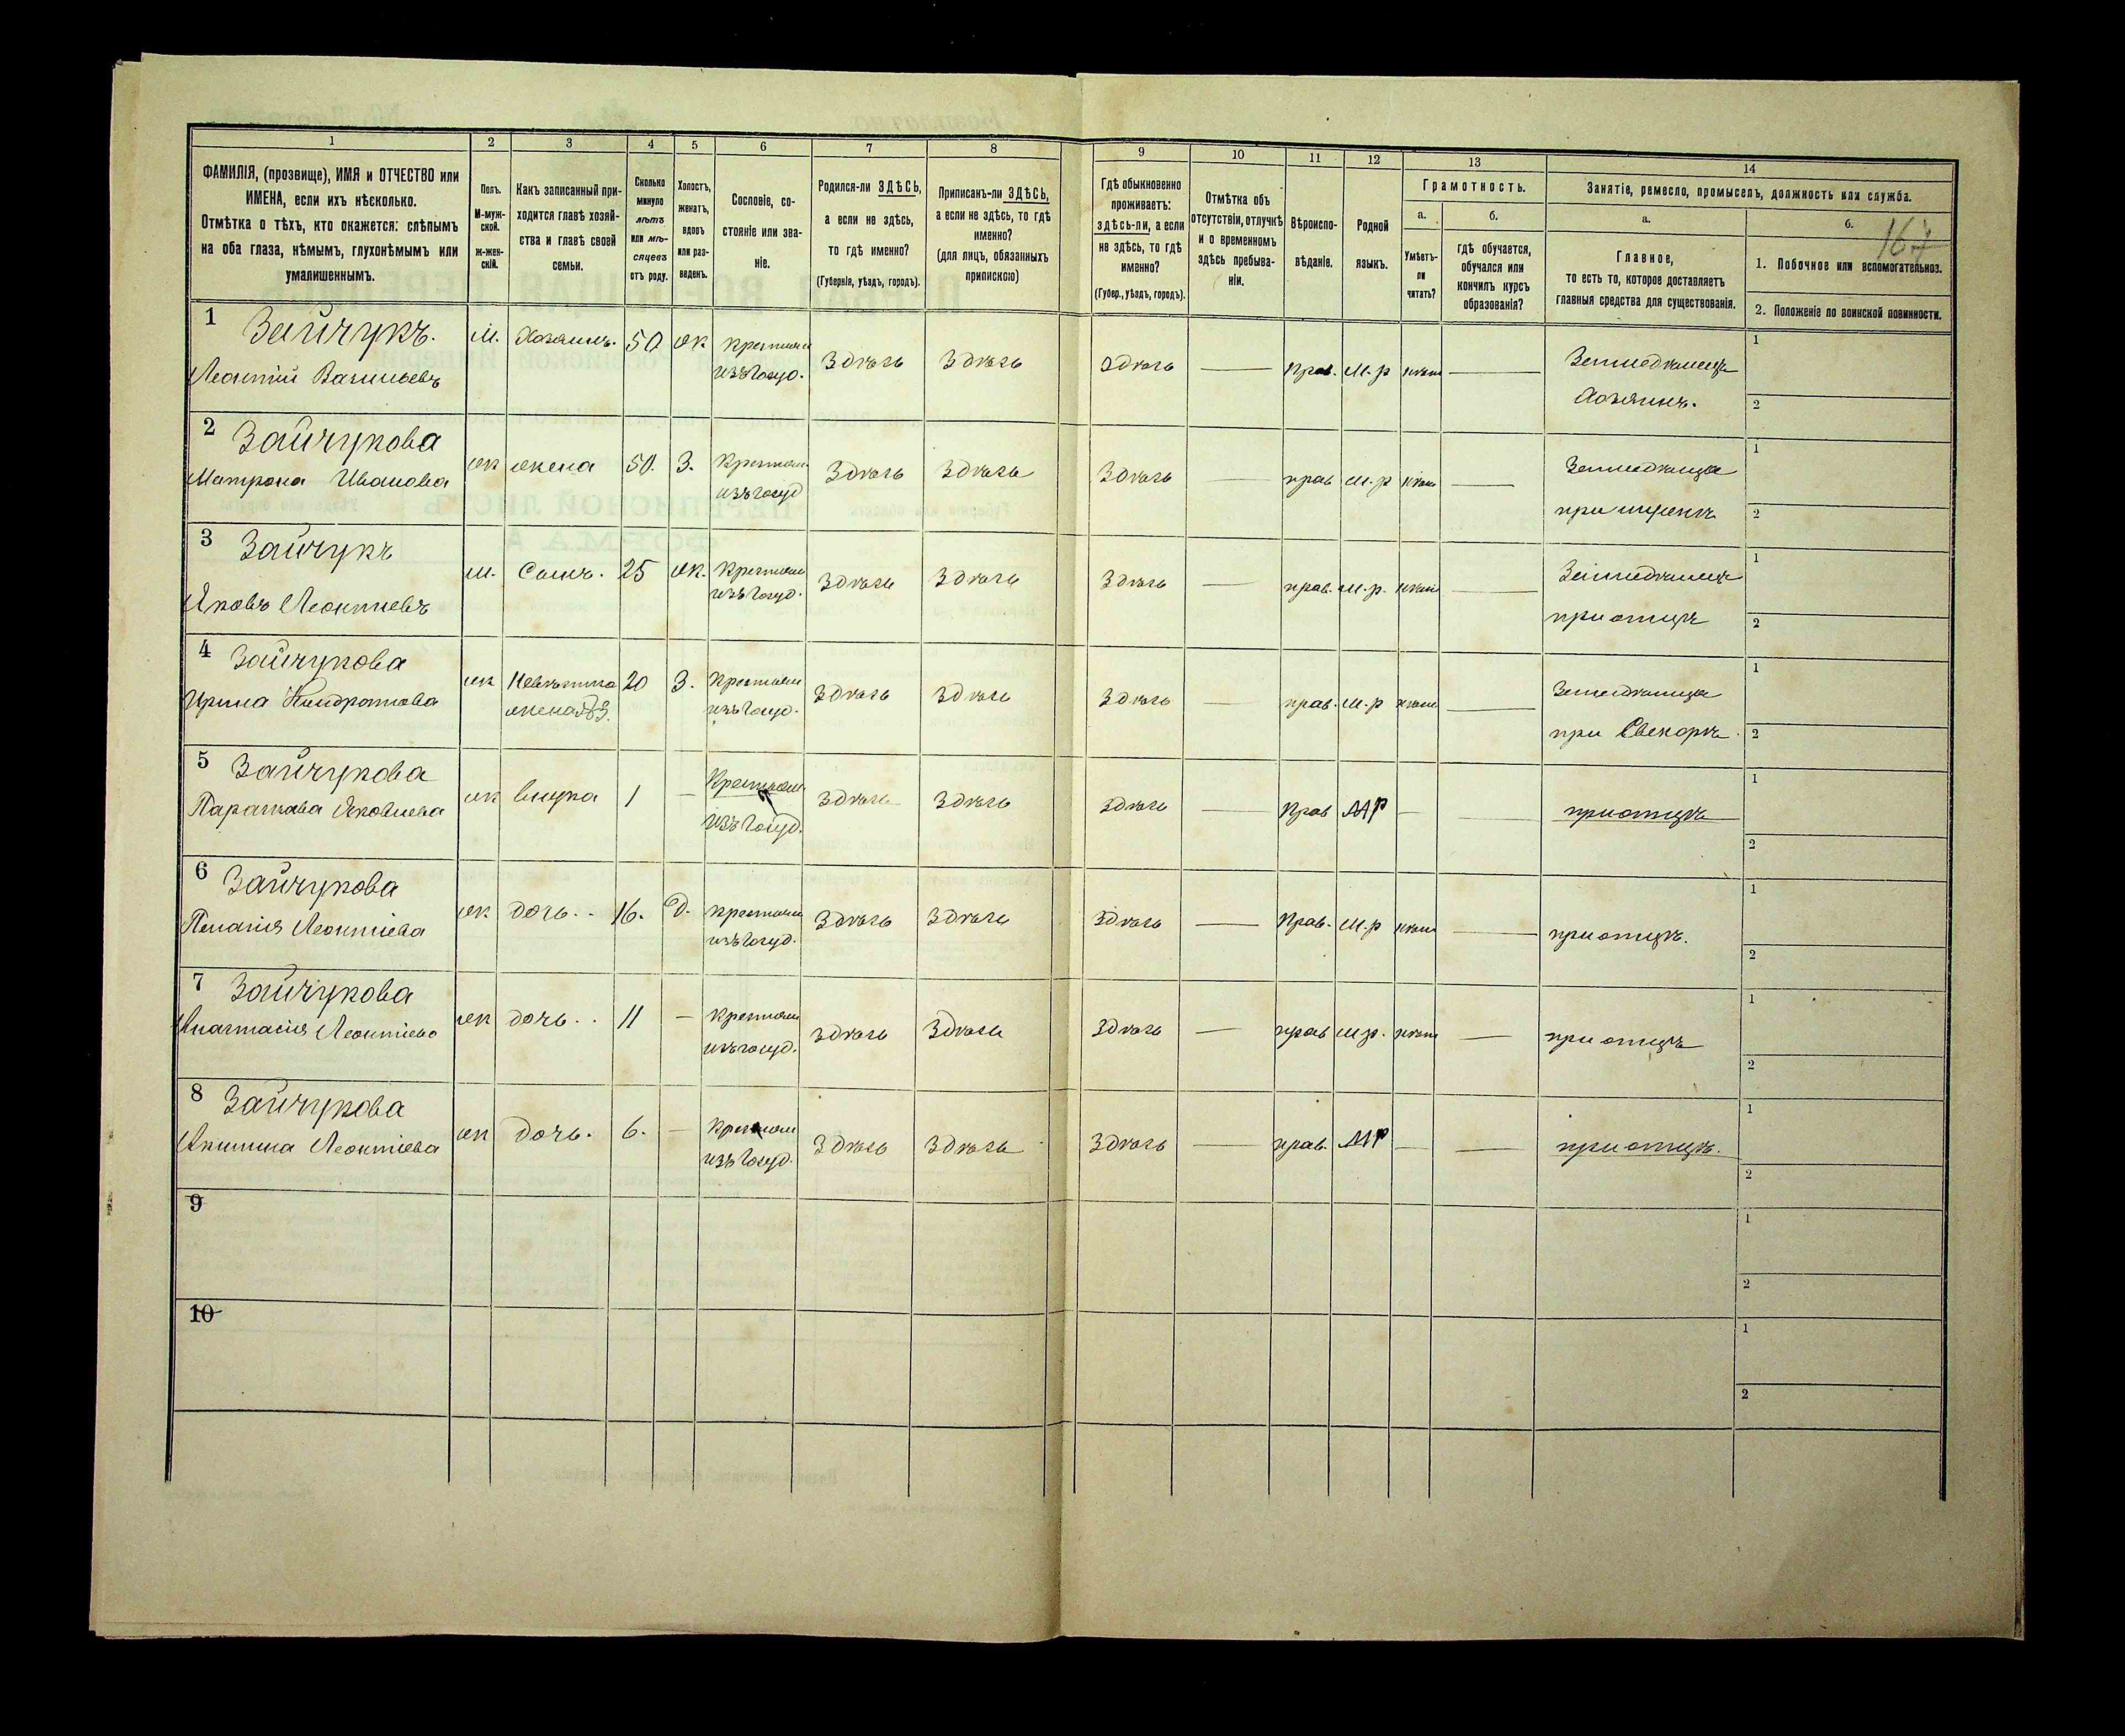 1 2 3 4 5 6 7 8 9 10 11 12 13 14
ФАМИЛІЯ, (прозвище), ИМЯ и ОТЧЕСТВО или
ИМЕНА, если ихъ нѣсколько.
Отмѣтка о тѣхъ, кто окажется: слѣпымъ
на оба глаза, нѣмымъ, глухонѣмымъ или
умалишеннымъ.
Полъ.
М-муж-
ской.
ж-жен-
скій.
Какъ записанный при-
ходится главѣ хозяй-
ства и главѣ своей
семьи.
Сколько
минуло
лѣтъ
или мѣ-
сяцевъ
отъ роду.
Холостъ,
женатъ,
вдовъ
или раз-
веденъ.
Сословіе, со-
стояніе или зва-
ніе.
Родился-ли ЗДѢСЬ,
а если не здѣсь,
то гдѣ именно?
(Губернія, уѣздъ, городъ).
Приписанъ-ли ЗДѢСЬ,
а если не здѣсь, то гдѣ
именно?
(для лицъ, обязанныхъ
припискою)
Гдѣ обыкновенно
проживаетъ:
здѣсь-ли, а если
не здѣсь, то гдѣ
именно?
(Губер., уѣздъ, городъ).
Отмѣтка объ
отсутствіи, отлучкѣ
и о временномъ
здѣсь пребыва-
ніи.
Вѣроиспо-
вѣданіе.
Родной
языкъ.
Грамотность.
а.
Умѣетъ-
ли
читать?
б.
гдѣ обучается,
обучался или
кончилъ курсъ
образованія?
Занятіе, ремесло, промыселъ, должность или служба.
а.
Главное,
то есть то, которое доставляетъ
главныя средства для существованія.
б.
167
1. Побочное или вспомогательное.
2. Положеніе по воинской повинности.
1 Зайчукъ. М. Хозяинъ. 50 ж Крестьян Здѣсь Здѣсь Здѣсь — прав. м.р нѣт — Земледѣлецъ 1
Леонтій Васильевъ изъ госуд. Хозяинъ. 2
2 Зайчукова ж жена 50. З. Крестьян Здѣсь Здѣсь Здѣсь — прав м.р — Земледѣлица 1
Матрона Иванова изъ госуд при мужѣ 2
3 Зайчукъ м. Сынъ. 25 ж. Крестьян Здѣсь Здѣсь Здѣсь — прав. м.р. — Земледѣлецъ 1
Яковъ Леонтіевъ изъ госуд. при отцѣ 2
4 Зайчукова ж Невѣстка 20 З. Крестьян Здѣсь Здѣсь Здѣсь — прав. м.р — Земледѣлица 1
Ирина Кондратова жена №3. изъ госуд. при Свекорѣ. 2
5 Зайчукова ж внука 1 — Крестьян Здѣсь Здѣсь Здѣсь — Прав МР — — при отцѣ 1
Параскева Яковлева изъ госуд. 2
6 Зайчукова ж дочь. 16. д. крестьян Здѣсь Здѣсь Здѣсь — Прав. м.р — при отцѣ. 1
Пелагія Леонтіева изъ госуд. 2
7 Зайчукова ж дочь. 11 — крестьян Здѣсь Здѣсь Здѣсь — прав м.р. — при отцѣ 1
Анастасія Леонтіева изъ госуд. 2
8 Зайчукова ж дочь. 6. — Крестьян Здѣсь Здѣсь Здѣсь — прав. МР — — при отцѣ. 1
Акилина Леонтіева изъ госуд. 2
9 1
2
10 1
2